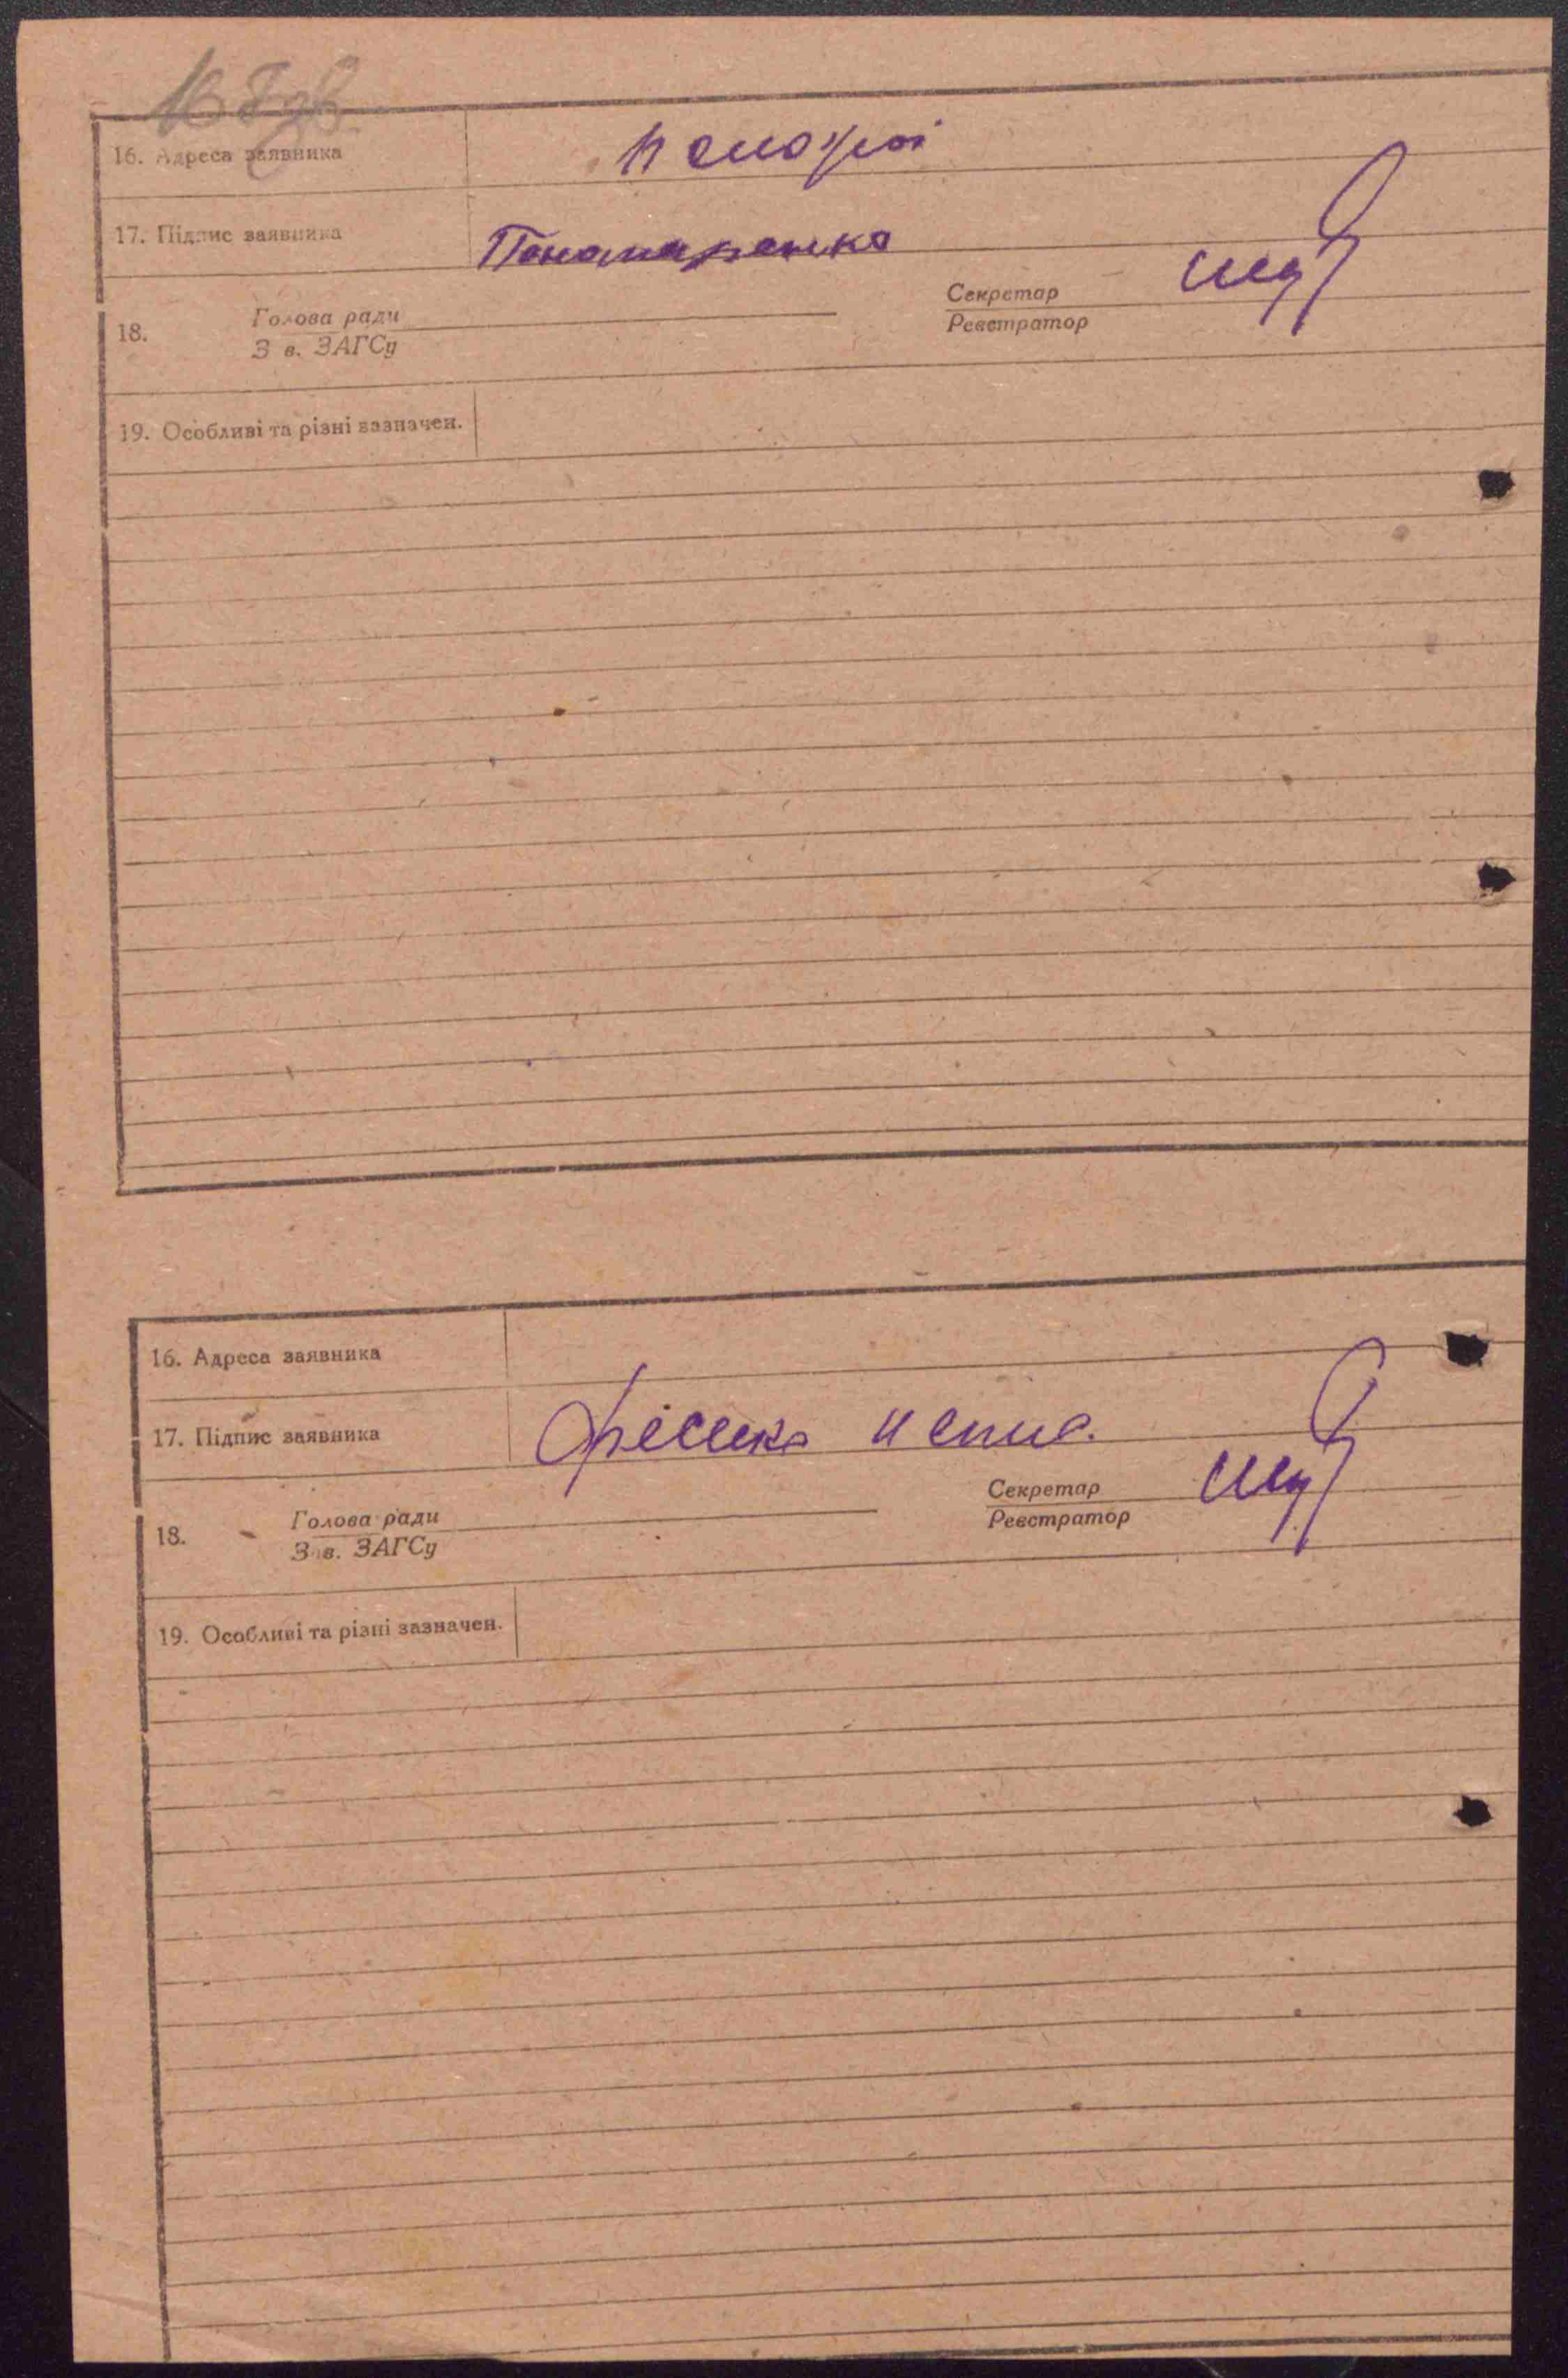 16. Адреса заявника
17. Підпис заявника Пономаренко
18. Голова ради Секретар
З в. ЗАГСу Реєстратор
19. Особливі та різні зазначен.
16. Адреса заявника
17. Підпис заявника
18. Голова ради Секретар
З в. ЗАГСу Реєстратор
19. Особливі та різні зазначен.